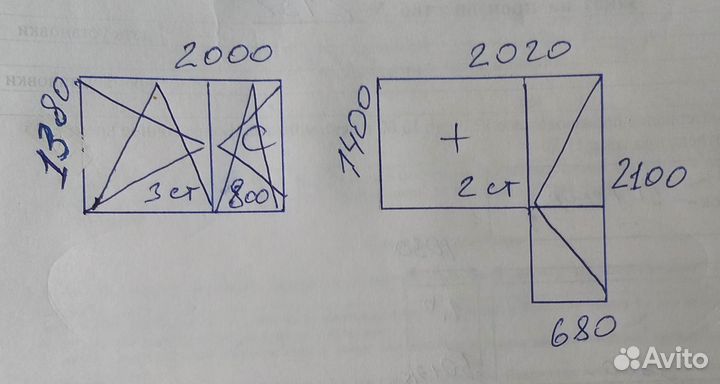 2000
1380
С
3 ст
800
2020
1400
+
2 ст
2100
680
Avito